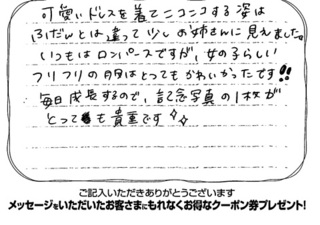 可愛いドレスを着てニコニコする姿は
ふだんとは違って少しお姉さんに見えました。
いつもはロンパースですが、女の子らしい
フリフリの服はとってもかわいかったです!!
毎日成長するので、記念写真の1枚が
とっても貴重です✧✧
ご記入いただきありがとうございます
メッセージをいただいたお客さまにもれなくお得なクーポン券プレゼント!